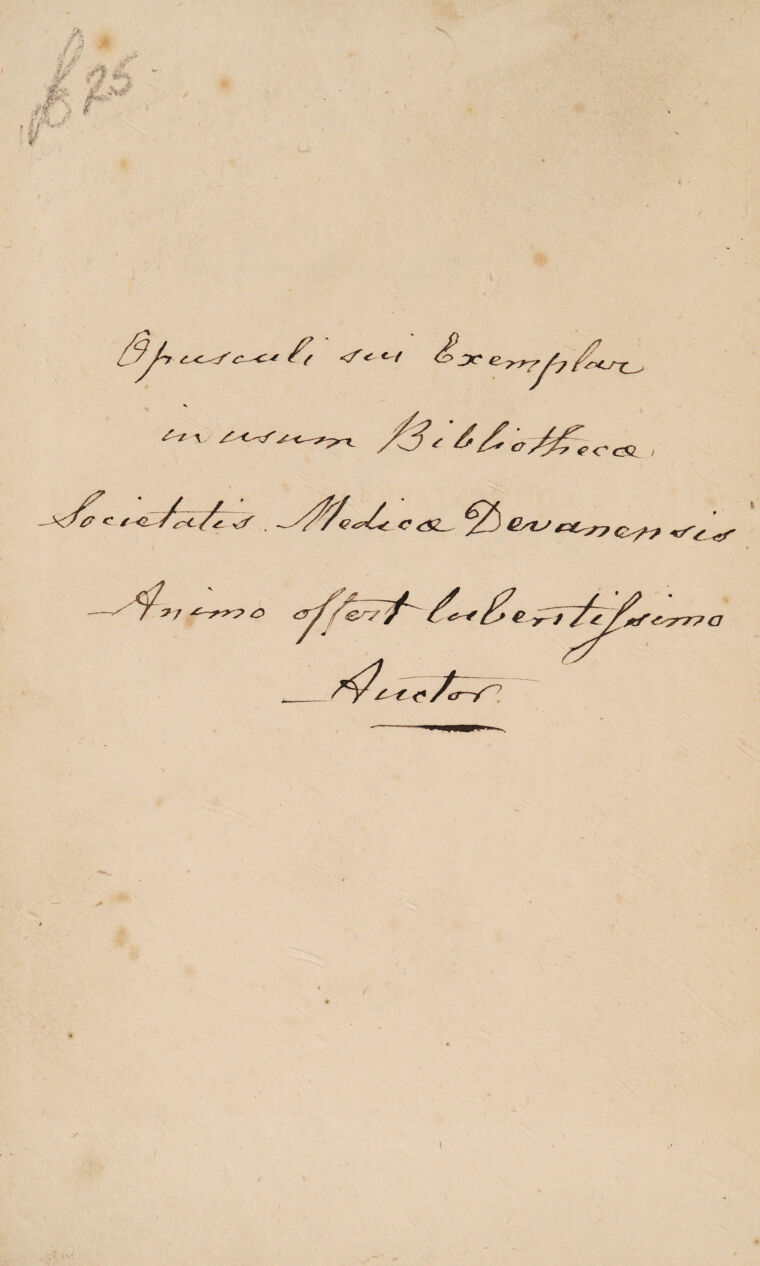 25
Opusculi sui Exemplar
in usum Bibliothecæ
Societatis Medicæ Devanensis
Animo offert lubentissimo
Auctor